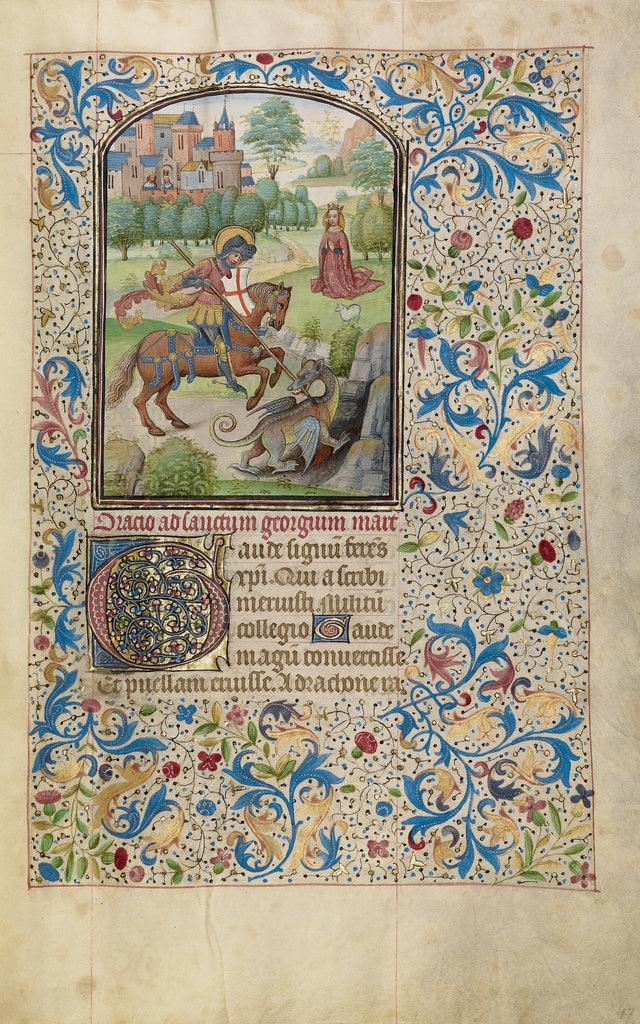 Oracio ad sanctum georgium mart̄
Gaude signū ferēs
xp̄i. Qui ascribi
meruisti Militū
collegio Gaude
magū convertisse
Et puellam eruisse. A drachone ra
47